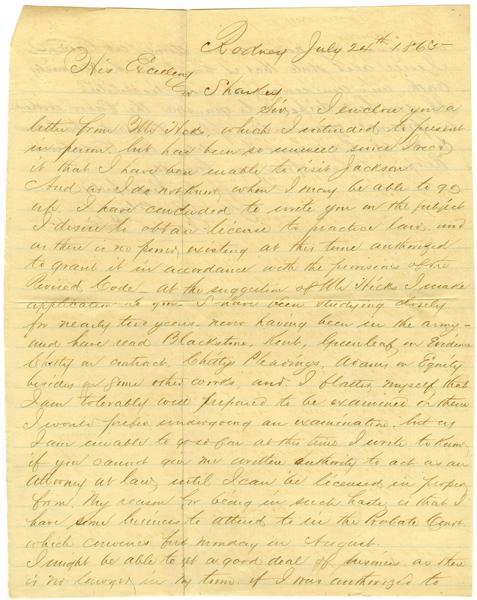 Rodney July 24th 1865
His Excellency
Gov Sharkey
Sir, I enclose you a
letter from Mr Hicks, which I intended to present
in person but has been so unwell since I rec'd
it that I have been unable to visit Jackson
And as I do not know when I may be able to go
up. I have concluded to write you on the subject
I desire to obtain license to practice law, and
as there is no power existing at this time authorized
to grant it in accordance with the provisions of the
Revised Code – at the suggestion of Mr Hicks I make
application to you. I have been studying closely
for nearly two years – never having been in the army –
and have read Blackstone, Kent, Greenleaf on Evidence
Chitty on contract, Chittys Pleadings, Adams on Equity
besides some other works, and I flatter myself that
I am tolerably well prepared to be examined on them
I would prefer undergoing an examination, but as
I am unable to go so far at this time I write to know
if you cannot give me written authority to act as an
Attorney at law, until I can be licensed in proper
form. My reason for being in such haste, is that I
have some business to attend to in the Probate Court
which convenes first monday in August.
I might be able to get a good deal of business as there
is no lawyer in my town if I was authorized to